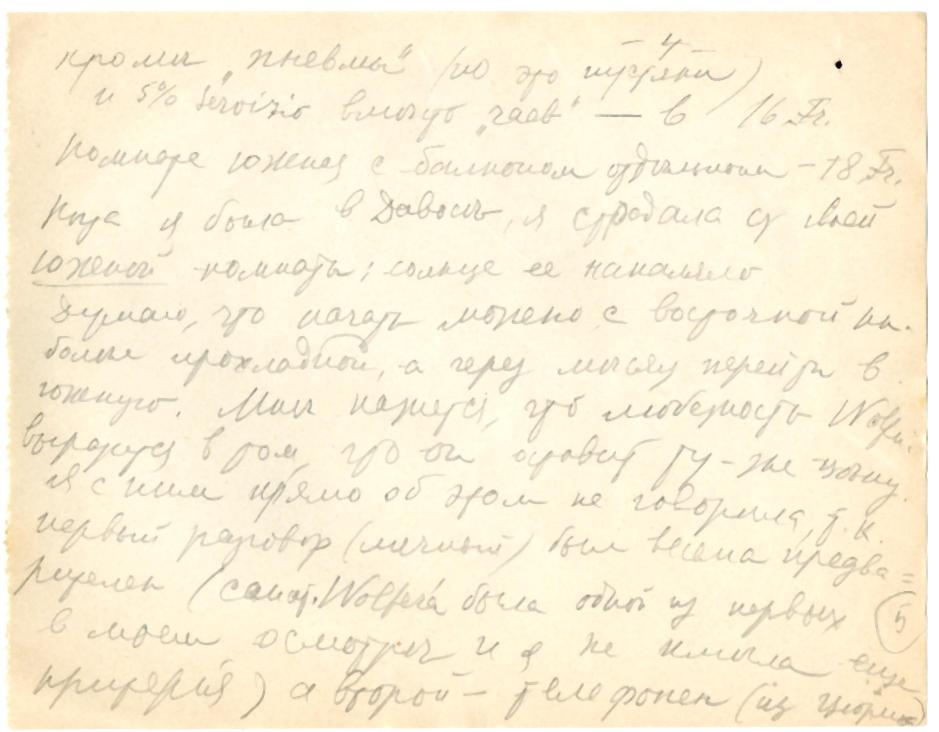 – 4 –
кроме „пневмы" (но это пустяки)
и 5% servizio вместо „чаев" — в 16 Fr.
Комната южная с балконом отдельным – 18 Fr.
Когда я была в Давосе, я страдала от своей
южной комнаты; солнце ее накаляло
Думаю, что начать можно с восточной на-
более прохладной, а через месяц перейти в
южную. Мне кажется, что любезность Wolfer
выразится в том, что он оставит ту-же цену.
Я с ним прямо об этом не говорила, т.к.
первый разговор (личный) был весьма предва=
рителен (санат. Wolfer'a была одной из первых
5
в моем осмотре и я не имела еще
критерия) а второй – телефонен (из Цюриха